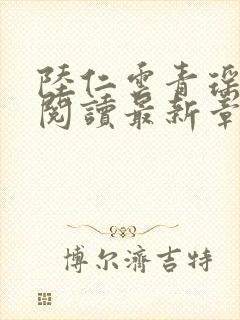 陸仁雲青瑤
閱讀最新章
博尔濟吉特